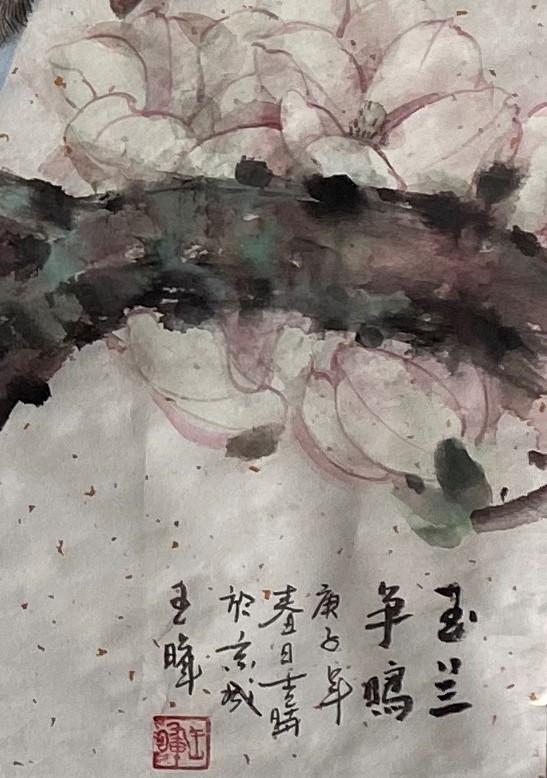 玉兰
争鸣
庚子年
春日吉时
於京城
王晖
王晖